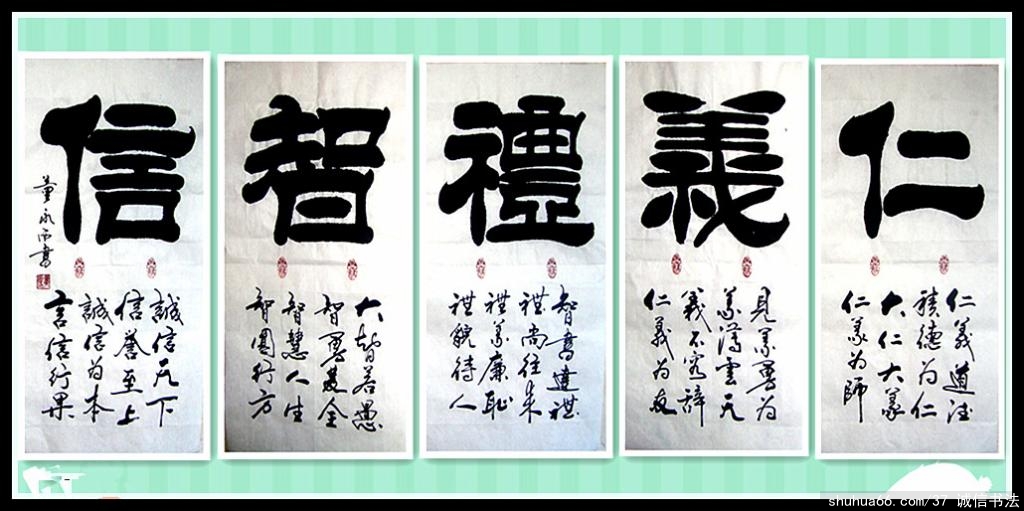 仁
仁義道法
積德为仁
大仁大義
仁義为師
義
見義勇为
義薄雲天
義不容辞
仁義为友
禮
智書達禮
禮尚往来
禮義廉耻
禮貌待人
智
大智若愚
智勇双全
智慧人生
智圓行方
信
誠信天下
信誉至上
誠信为本
言信行果
董永西書
shuhua66.com/37 诚信书法